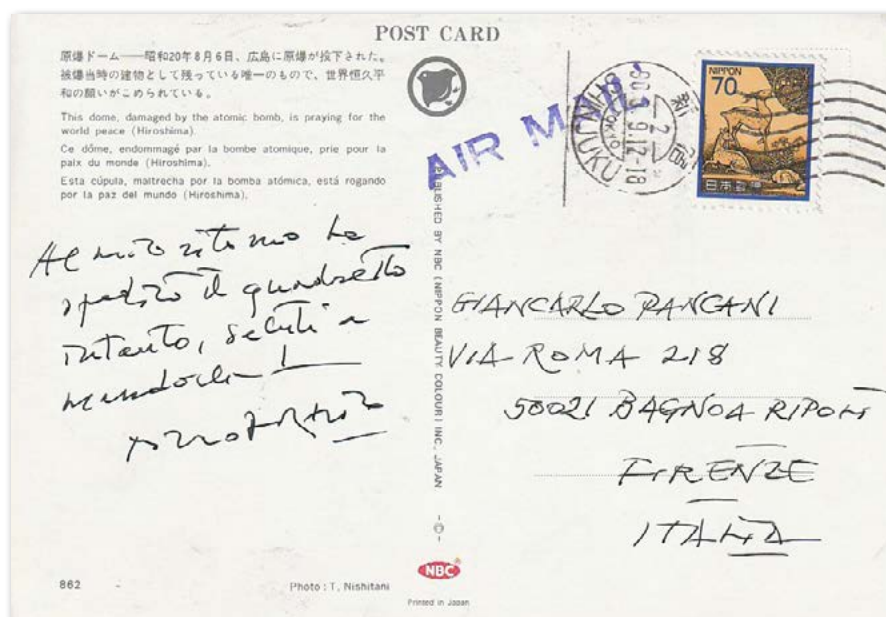 POST CARD
原爆ドーム──昭和20年8月6日、広島に原爆が投下された。
被爆当時の建物として残っている唯一のもので、世界恒久平
和の願いがこめられている。
This dome, damaged by the atomic bomb, is praying for the
world peace (Hiroshima).
Ce dôme, endommagé par la bombe atomique, prie pour la
paix du monde (Hiroshima).
Esta cúpula, maltrecha por la bomba atómica, está rogando
por la paz del mundo (Hiroshima).
Al mio ritorno ho
spedito il quadretto
intanto, saluti a
862
Photo : T. Nishitani
PUBLISHED BY NBC (NIPPON BEAUTY COLOUR) INC. JAPAN
NBC
Printed in Japan
AIR MAIL
SHINJUKU
TOKYO
新宿
12-18
NIPPON
70
日本郵便
GIANCARLO PANCANI
VIA ROMA 218
50021 BAGNOA RIPOLI
FIRENZE
ITALIA